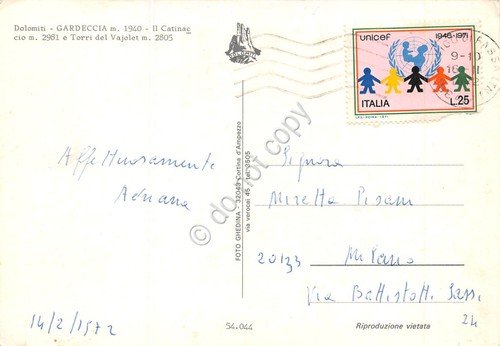 Dolomiti - GARDECCIA m. 1940 - Il Catinac
cio m. 2981 e Torri del Vajolet m. 2805
unicef 1946-1971
ITALIA L.25
9-10
Affettuosamente
Adriana
Signora
Mirella Pisani
20133 Milano
Via Battistotti Sassi
24
14/2/1972
FOTO GHEDINA - 32043 Cortina d'Ampezzo
via verocai 45 - tel. 3605
do not copy
54.044
Riproduzione vietata